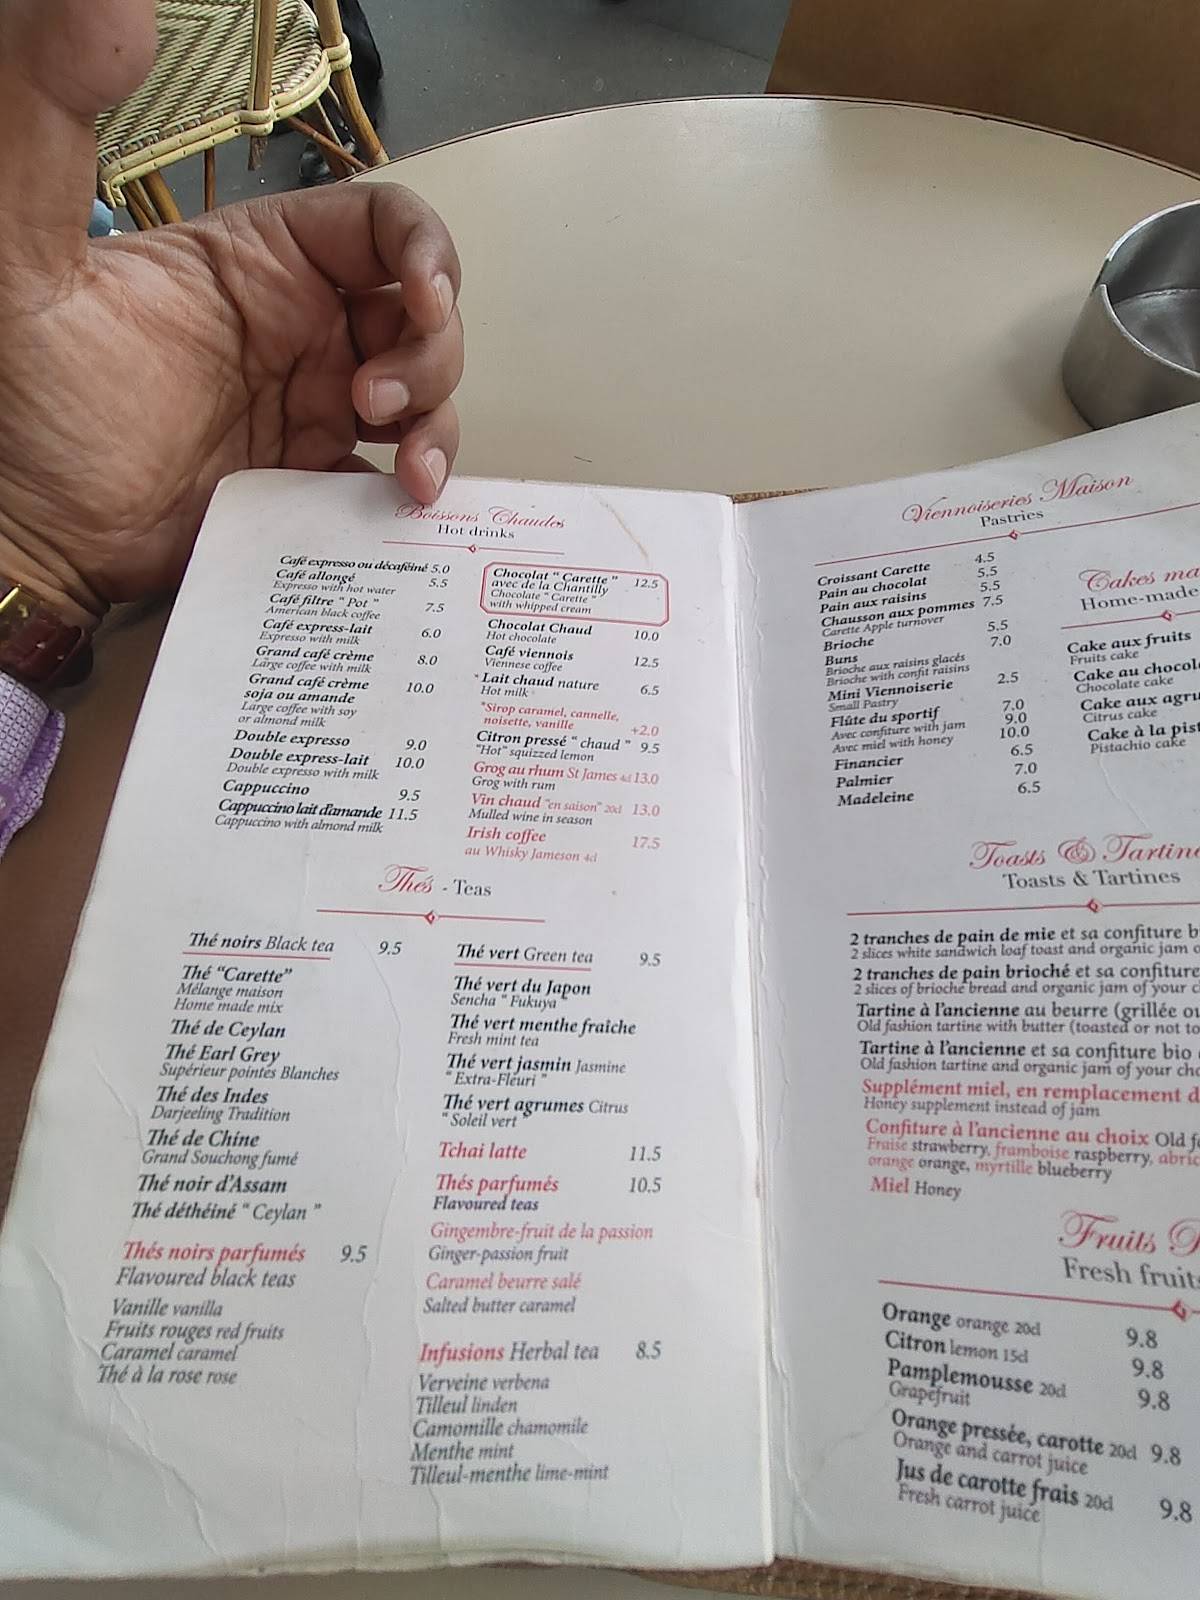 Boissons Chaudes
Hot drinks
Café expresso ou décaféiné 5.0
Café allongé 5.5
Expresso with hot water
Café filtre " Pot " 7.5
American black coffee
Café express-lait 6.0
Expresso with milk
Grand café crème 8.0
Large coffee with milk
Grand café crème 10.0
soja ou amande
Large coffee with soy
or almond milk
Double expresso 9.0
Double express-lait 10.0
Double expresso with milk
Cappuccino 9.5
Cappuccino lait d'amande 11.5
Cappuccino with almond milk
Chocolat " Carette " 12.5
avec de la Chantilly
Chocolate " Carette "
with whipped cream
Chocolat Chaud 10.0
Hot chocolate
Café viennois 12.5
Viennese coffee
*Lait chaud nature 6.5
Hot milk
*Sirop caramel, cannelle,
noisette, vanille +2.0
Citron pressé " chaud " 9.5
"Hot" squizzed lemon
Grog au rhum St James 4cl 13.0
Grog with rum
Vin chaud "en saison" 20cl 13.0
Mulled wine in season
Irish coffee 17.5
au Whisky Jameson 4cl
Thés - Teas
Thé noirs Black tea 9.5
Thé "Carette"
Mélange maison
Home made mix
Thé de Ceylan
Thé Earl Grey
Supérieur pointes Blanches
Thé des Indes
Darjeeling Tradition
Thé de Chine
Grand Souchong fumé
Thé noir d'Assam
Thé déthéiné " Ceylan "
Thés noirs parfumés 9.5
Flavoured black teas
Vanille vanilla
Fruits rouges red fruits
Caramel caramel
Thé à la rose rose
Thé vert Green tea 9.5
Thé vert du Japon
Sencha " Fukuya
Thé vert menthe fraîche
Fresh mint tea
Thé vert jasmin Jasmine
" Extra-Fleuri "
Thé vert agrumes Citrus
" Soleil vert "
Tchai latte 11.5
Thés parfumés 10.5
Flavoured teas
Gingembre-fruit de la passion
Ginger-passion fruit
Caramel beurre salé
Salted butter caramel
Infusions Herbal tea 8.5
Verveine verbena
Tilleul linden
Camomille chamomile
Menthe mint
Tilleul-menthe lime-mint
Viennoiseries Maison
Pastries
Croissant Carette 4.5
Pain au chocolat 5.5
Pain aux raisins 5.5
Chausson aux pommes 7.5
Carette Apple turnover
Brioche 5.5
Buns 7.0
Brioche aux raisins glacés
Brioche with confit raisins
Mini Viennoiserie 2.5
Small Pastry
Flûte du sportif 7.0
Avec confiture with jam 9.0
Avec miel with honey 10.0
Financier 6.5
Palmier 7.0
Madeleine 6.5
Cakes ma
Home-made
Cake aux fruits
Fruits cake
Cake au chocol
Chocolate cake
Cake aux agru
Citrus cake
Cake à la pist
Pistachio cake
Toasts & Tartine
Toasts & Tartines
2 tranches de pain de mie et sa confiture b
2 slices white sandwich loaf toast and organic jam o
2 tranches de pain brioché et sa confiture
2 slices of brioche bread and organic jam of your c
Tartine à l'ancienne au beurre (grillée ou
Old fashion tartine with butter (toasted or not to
Tartine à l'ancienne et sa confiture bio
Old fashion tartine and organic jam of your cho
Supplément miel, en remplacement d
Honey supplement instead of jam
Confiture à l'ancienne au choix Old f
Fraise strawberry, framboise raspberry, abric
orange orange, myrtille blueberry
Miel Honey
Fruits P
Fresh fruits
Orange orange 20cl 9.8
Citron lemon 15cl 9.8
Pamplemousse 20cl 9.8
Grapefruit
Orange pressée, carotte 20cl 9.8
Orange and carrot juice
Jus de carotte frais 20cl 9.8
Fresh carrot juice